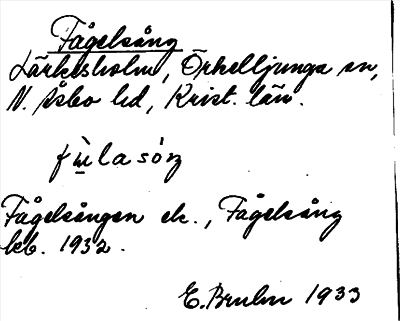 Fågelsång
Lärkesholm, Örkelljunga sn,
N. Åsbo hd, Krist. län.
Fågelsången ek., Fågelsång
leb. 1932.
E. Bruhn 1933